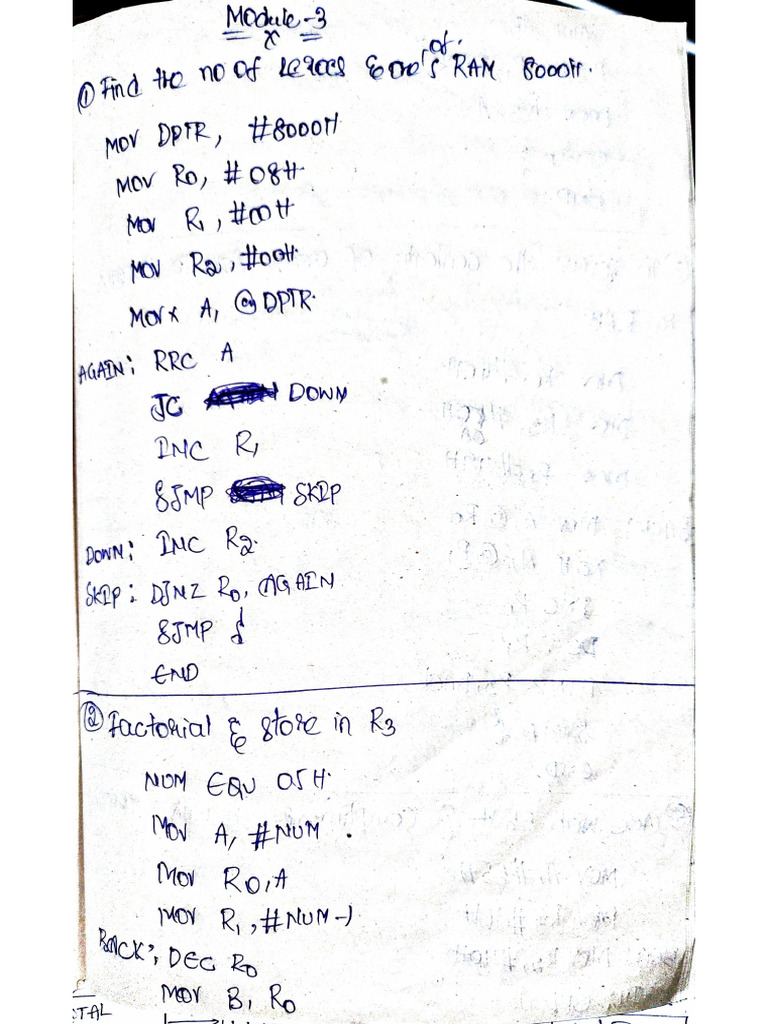 Module-3
① Find the no of zeroes & one's of RAM 8000H.
MOV DPTR, #8000H
MOV R0, #08H
MOV R1, #00H
MOV R2, #00H
MOVX A, @DPTR
AGAIN: RRC A
JC DOWN
INC R1
SJMP SKIP
DOWN: INC R2
SKIP: DJNZ R0, AGAIN
SJMP $
END
② Factorial & store in R3
NUM EQU 05H
MOV A, #NUM
MOV R0, A
MOV R1, #NUM-1
BACK: DEC R0
MOV B, R0